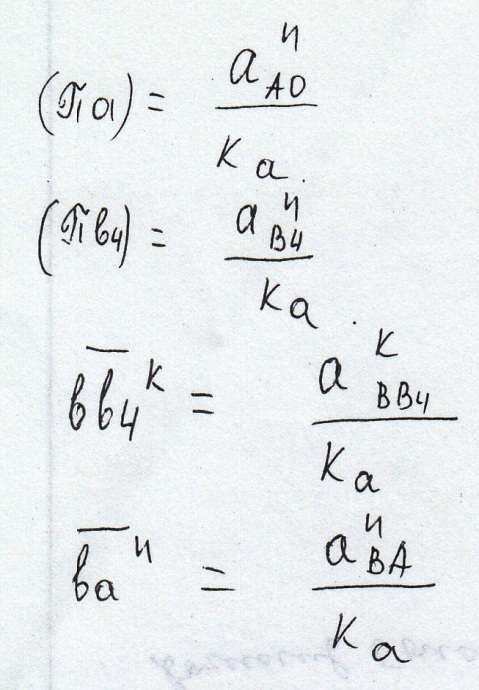 (Πa) = a^n_AO / K_a.
(Πb4) = a^n_B4 / K_a.
bb4^K = a^K_BB4 / K_a
ba^n = a^n_BA / K_a